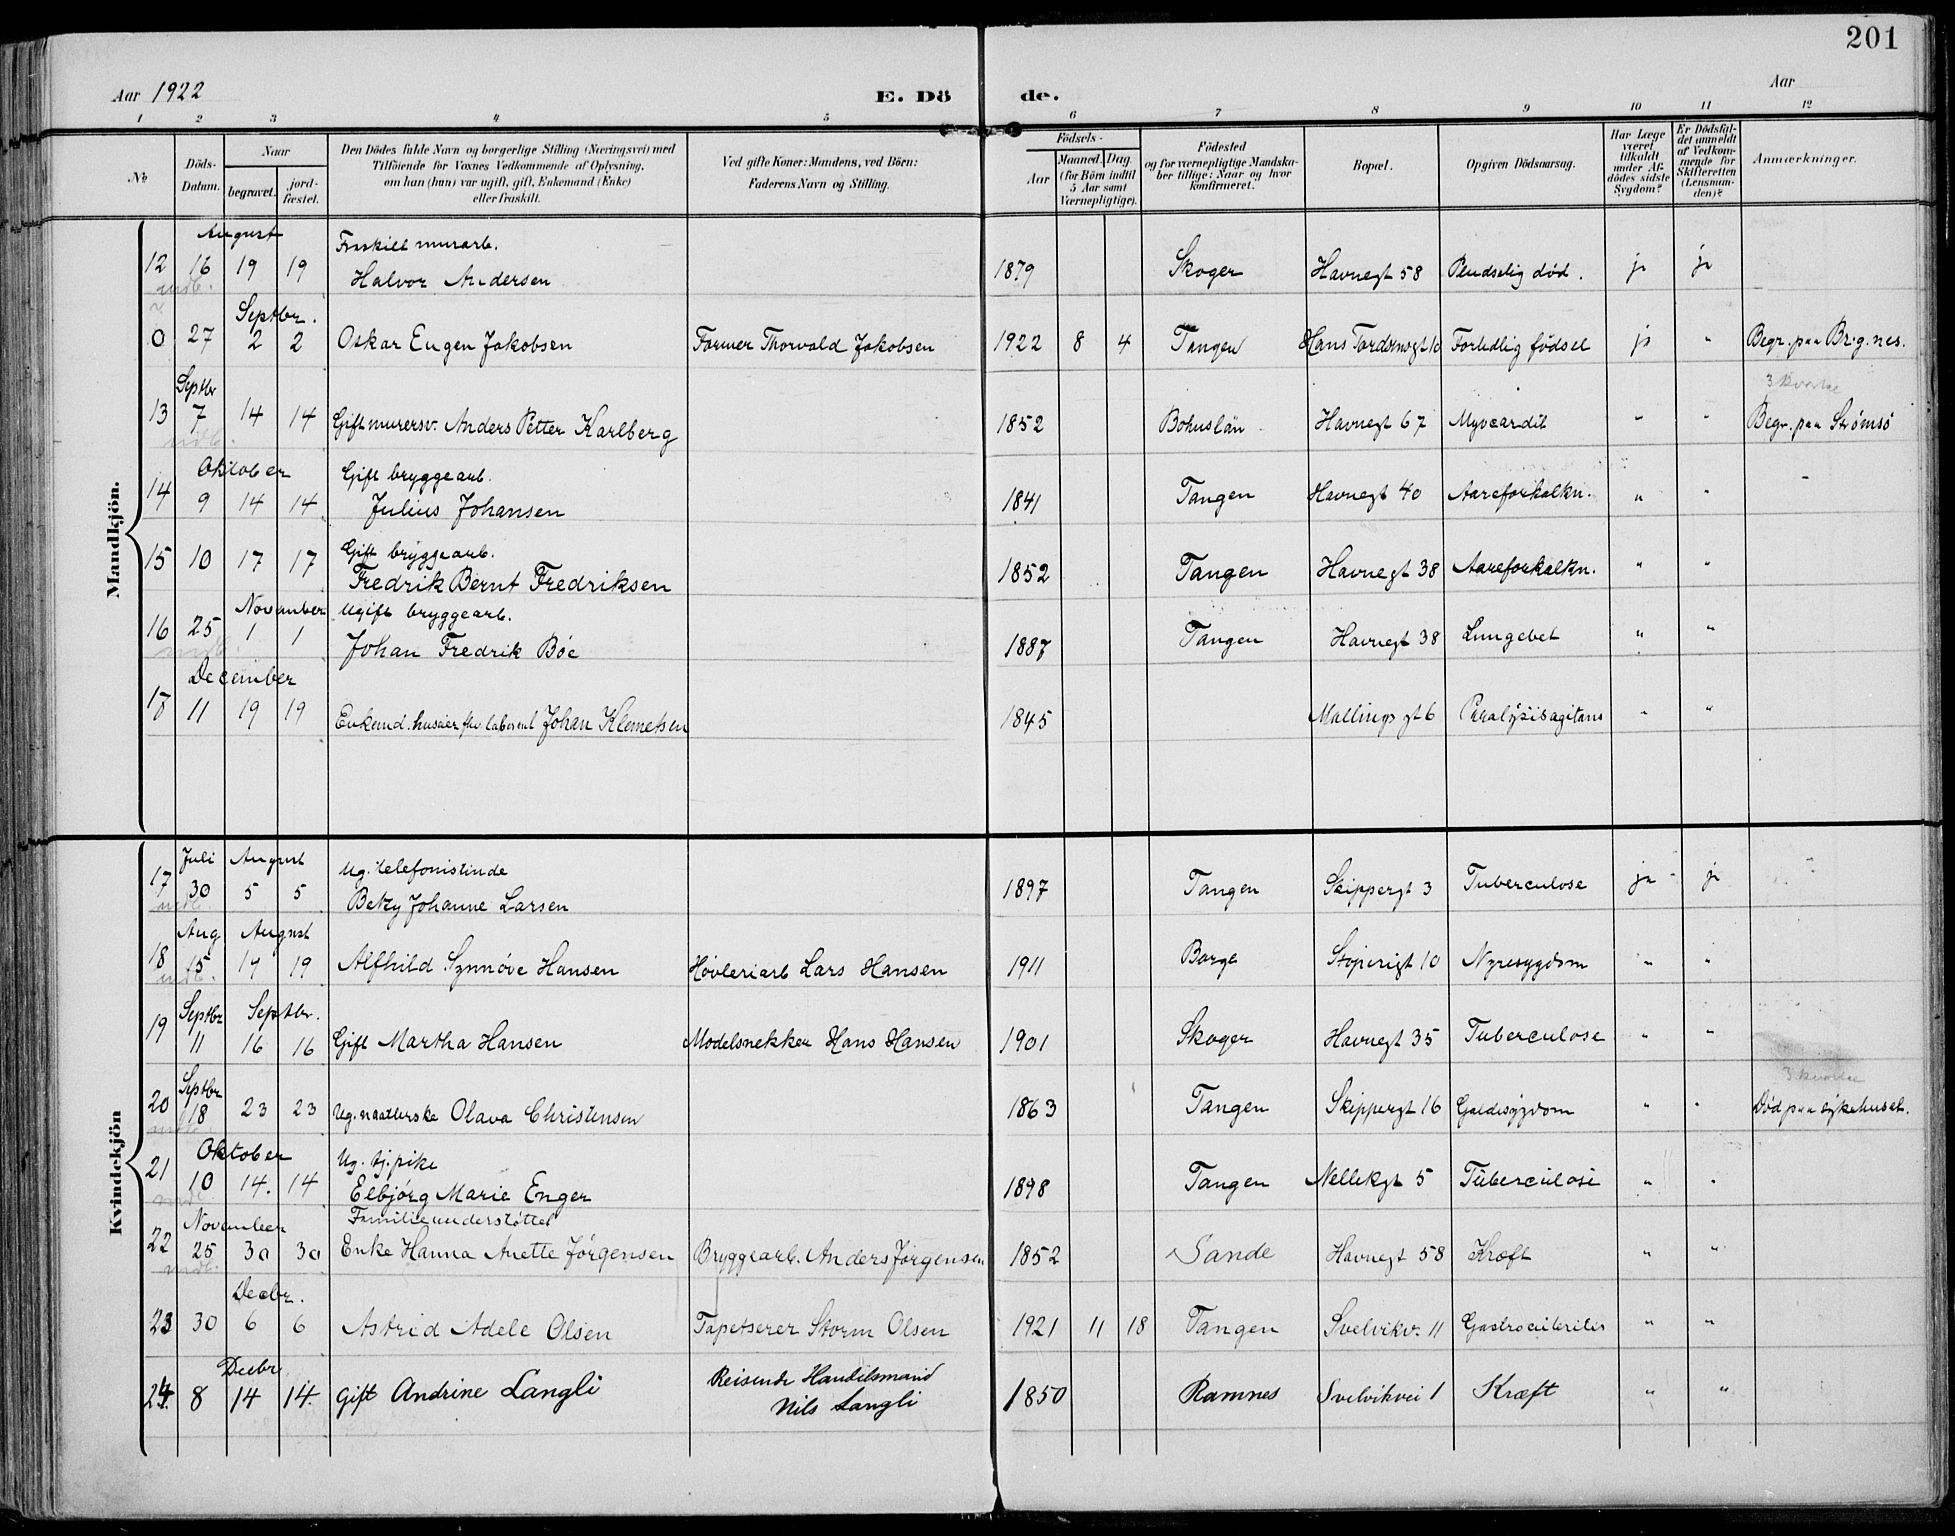 201
Aar 1922 E. Dö de. Aar
1 2 3 4 5 6 7 8 9 10 11 12
No
Döds-Datum.
Naar
begravet.
jord-fæstet.
Den Dödes fulde Navn og borgerlige Stilling (Næringsvei) med
Tilföiende for Voxnes Vedkommende af Oplysning,
om han (hun) var ugift, gift, Enkemand (Enke)
eller fraskilt.
Ved gifte Koner: Mandens, ved Börn:
Faderens Navn og Stilling.
Födsels-
Aar
Maaned. Dag.
(for Börn indtil
5 Aar samt
Værnepligtige).
Födested
og for værnepligtige Mandska-
ber tillige: Naar og hvor
konfirmeret.
Bopæl.
Opgiven Dödsaarsag.
Har Læge
været
tilkaldt
under Af-
dödes sidste
Sygdom?
Er Dödsfal-
det anmeldt
af Vedkom-
mende for
Skifteretten
(Lensman-
den)?
Anmærkninger.
Mandkjön.
August Fraskilt murarb.
12 16 19 19 Halvor Andersen 1879 Skoger Havnegt 58 Pludselig död. ja ja
mdb.
Septbr.
0 27 2 2 Oskar Eugen Jakobsen Former Thorvald Jakobsen 1922 8 4 Tangen Fortidlig födsel ja " Begr. paa Brg.nes.
Septbr
13 7 14 14 Gift murersv. Anders Petter Karlberg 1852 Bohuslän Havnegt 67 Myocardit " " Begr. paa Strømsö
mdb.
Oktober Gift bryggearb.
14 9 14 14 Julius Johansen 1841 Tangen Havnegt 40 Aareforkalkn. " " "
Gift bryggearb.
15 10 17 17 Fredrik Bernt Fredriksen 1852 Tangen Havnegt 38 Aareforkalkn. " "
November Ugift bryggearb.
16 25 1 1 Johan Fredrik Böe 1887 Tangen Havnegt 38 Lungebet " "
mdb.
December
17 11 19 19 Enkemd. huseier fhv Johan Klemetsen 1845 Mallings gt 6 Paralysis agitans " "
Kvindekjön
Juli August Ug. telefonistinde
17 30 5 5 Betzy Johanne Larsen 1897 Tangen Skippergt 3 Tuberculose ja ja "
mdb.
Aug August
18 15 19 19 Alfhild Synnöve Hansen Høvleriarb Lars Hansen 1911 Borge Støperigt 10 Nyresygdom " "
mdb.
Septbr Septbr.
19 11 16 16 Gift Martha Hansen Modelsnekker Hans Hansen 1901 Skoger Havnegt 35 Tuberculose " "
Septbr
20 18 23 23 Ug. Olava Christensen 1863 Tangen Skippergt 16 Galdesygdom " " Död paa sykehuset.
mdb.
Oktober Ug. tj.pike
21 10 14. 14 Elbjörg Marie Enger 1898 Tangen Nellikgt 5 Tuberculose " "
mdb.
November Familieunderstöttet
22 25 30 30 Enke Hanna Anette Jörgensen Bryggearb. Anders Jörgensen 1852 Sande Havnegt 58 Kræft " "
mdb.
Decbr.
23 30 6 6 Astrid Adele Olsen Tapetserer Storm Olsen 1921 11 18 Tangen Svelvikv. 11 Gastroenteritis " "
Decbr. Reisende Handelsmand
24. 8 14 14. Gift Andrine Langli Nils Langli 1850 Ramnes Svelvikvei 1 Kræft " "